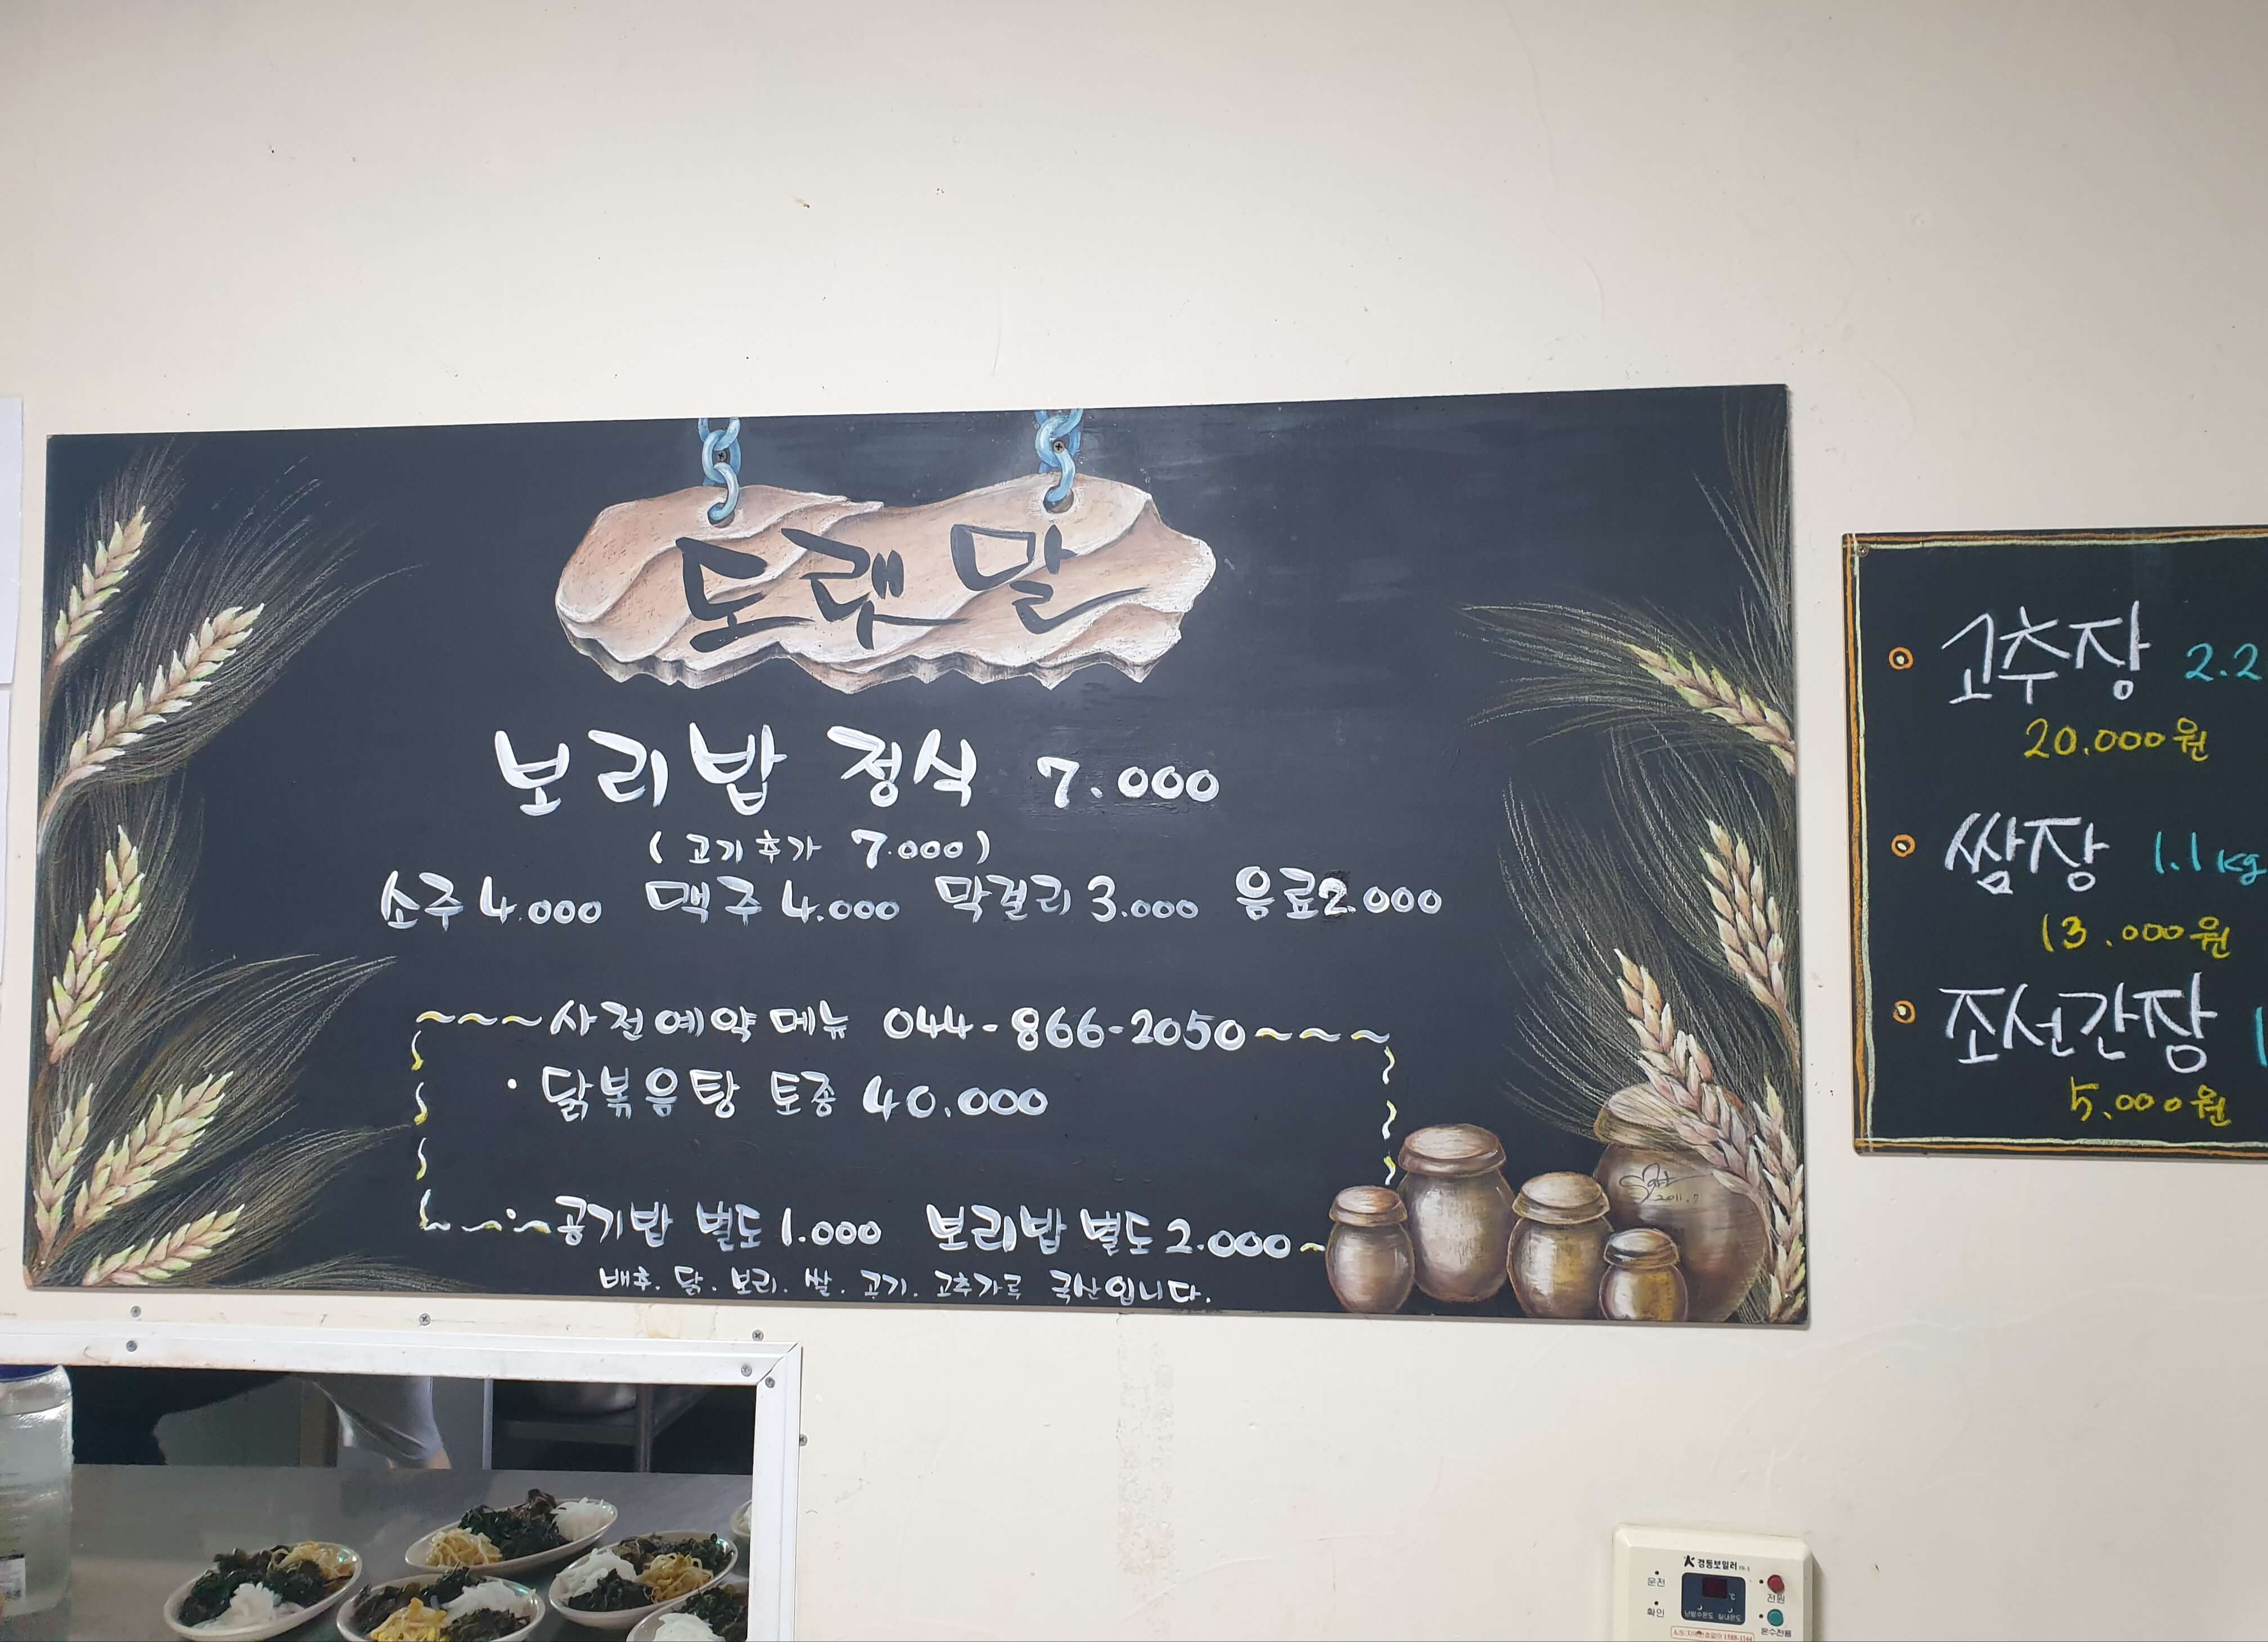 도렛말
보리밥 정식 7.000
(고기추가 7.000)
소주 4.000 맥주 4.000 막걸리 3.000 음료 2.000
사전예약 메뉴 044-866-2050
· 닭볶음탕 토종 40.000
공기밥 별도 1.000 보리밥 별도 2.000
배추. 닭. 보리. 쌀. 고기. 고추가루 국산입니다.
2011.7
고추장 2.2
20.000원
쌈장 1.1kg
13.000원
조선간장 1
5.000원
경동보일러
운전
전원
확인
난방수온도 실내온도
온수전용